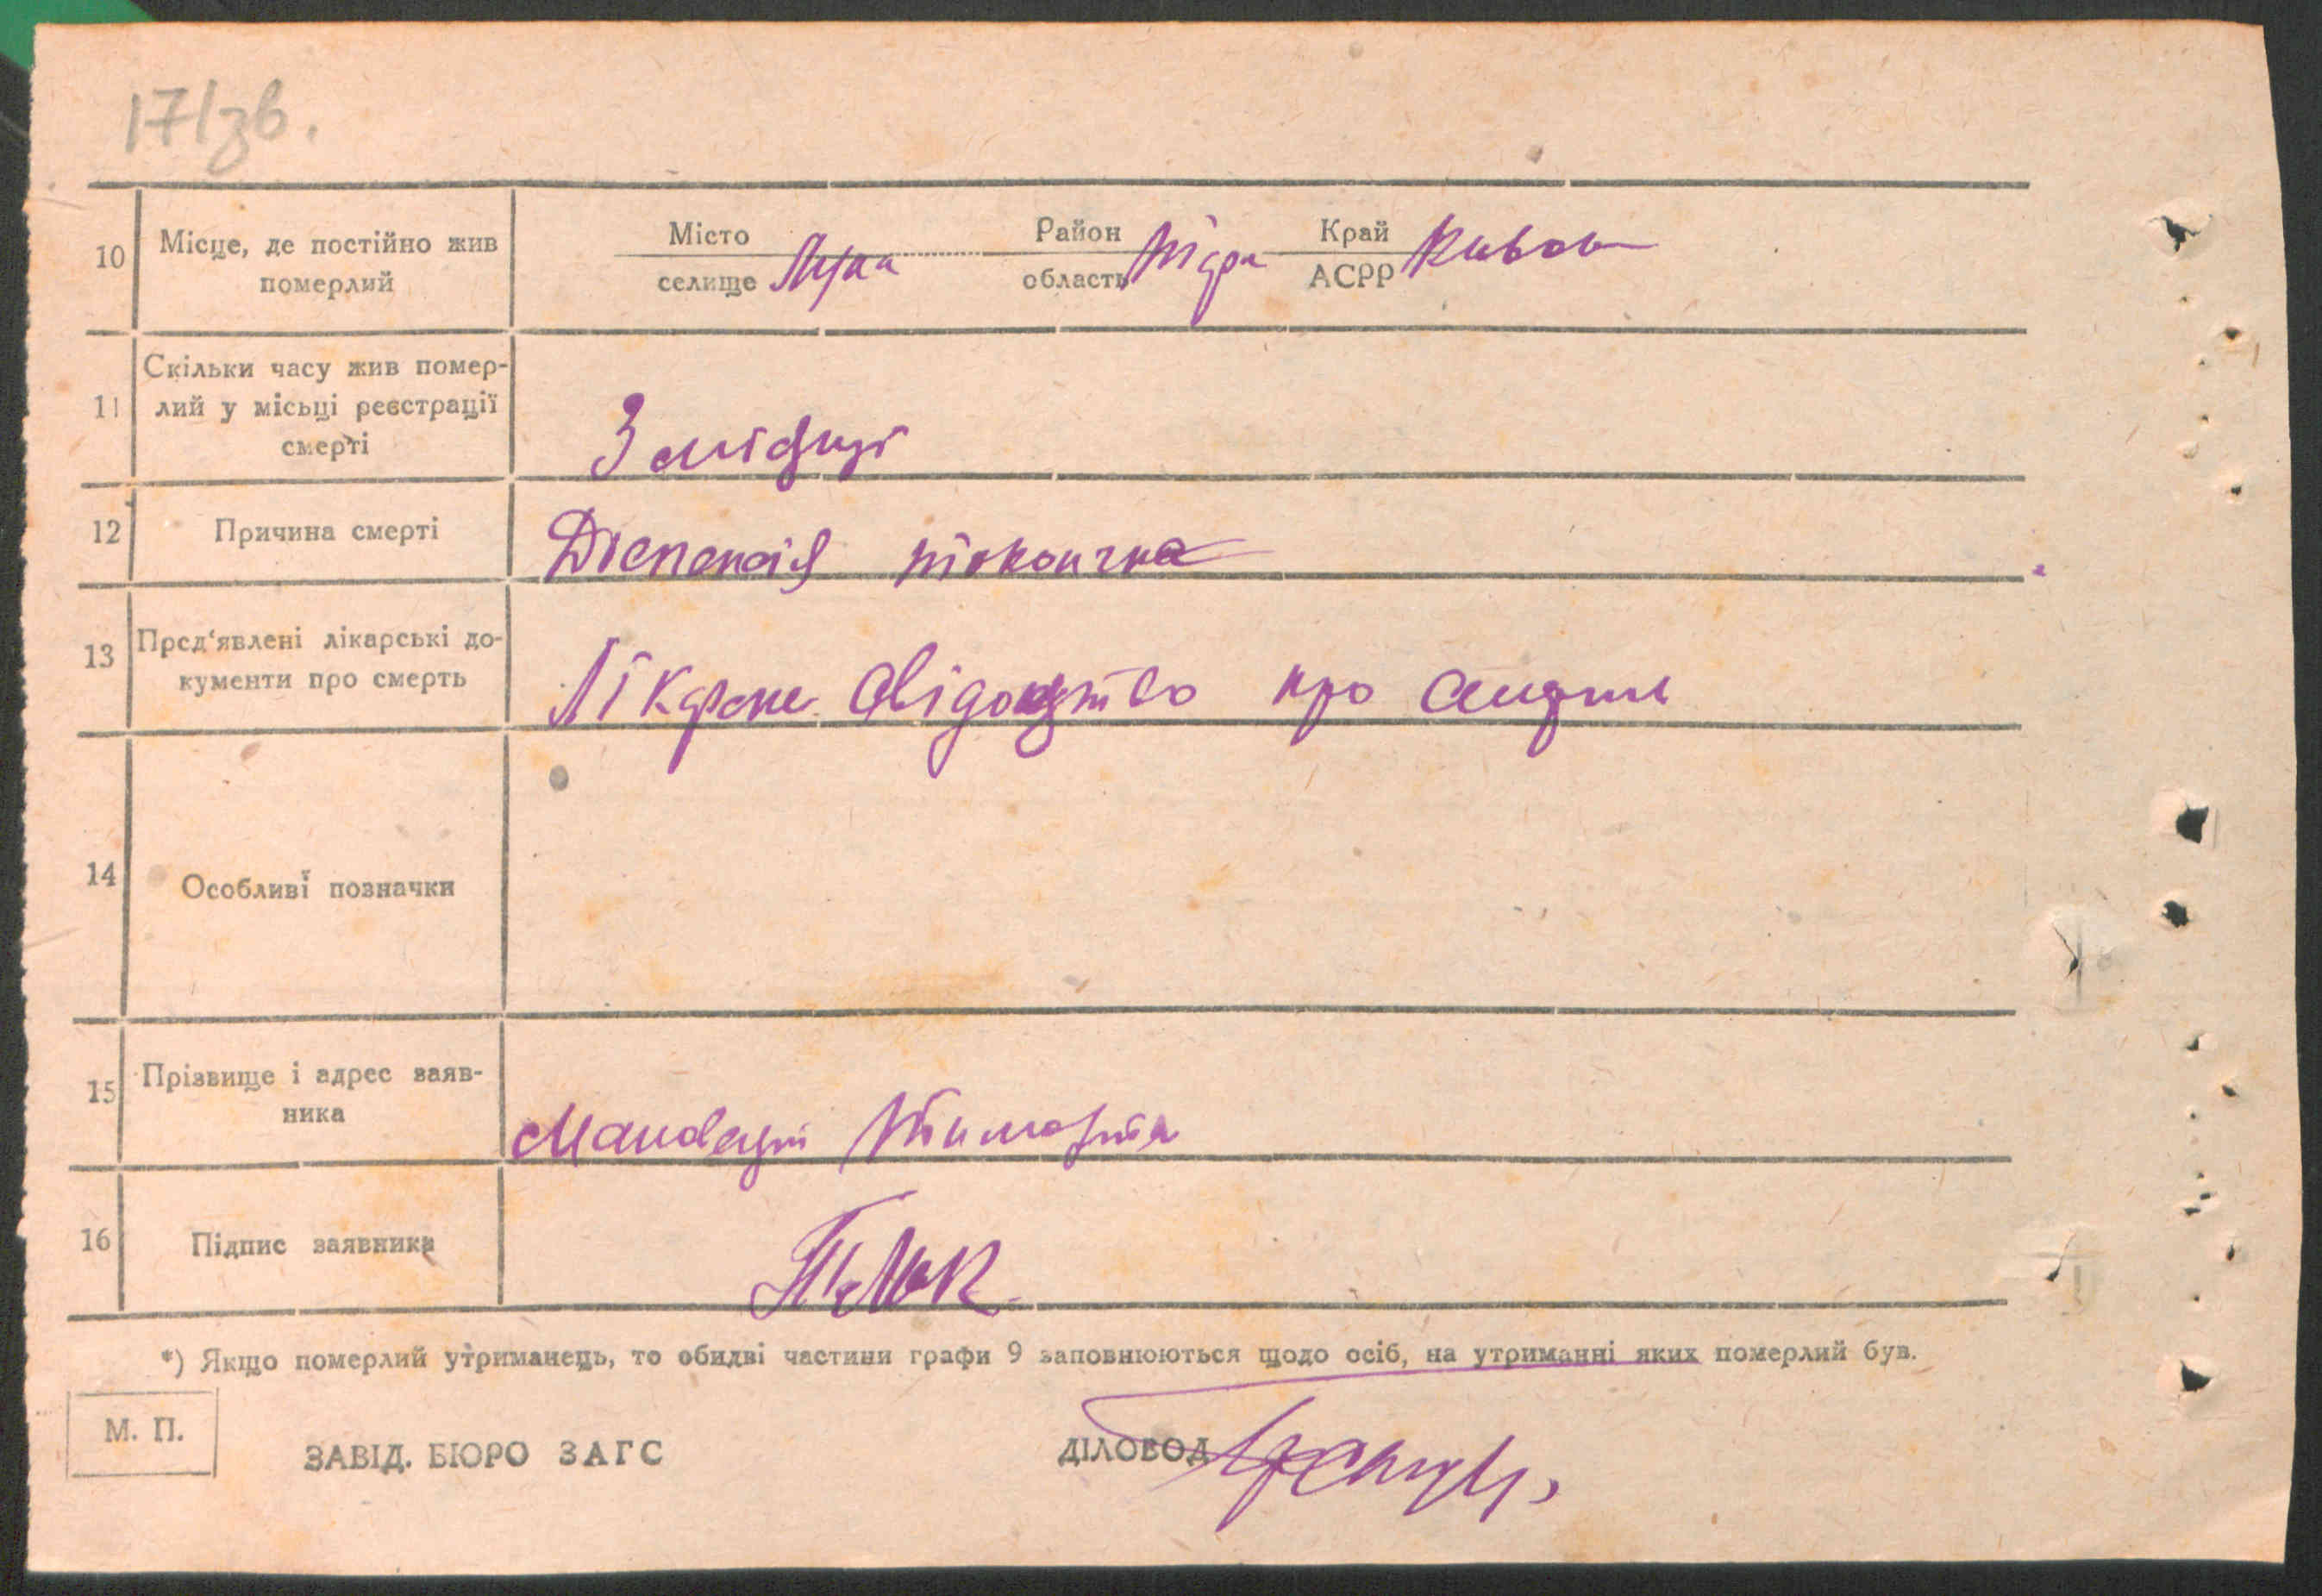 171зв.
10 Місце, де постійно жив померлий
Місто
селище Лука
Район
область
Край
АСРР
11 Скільки часу жив помер-
лий у місьці реєстрації
смерті
3 місяці
12 Причина смерті
Диспепсія токсична
13 Пред‘явлені лікарські до-
кументи про смерть
Лікарске свідоцтво про смерть
14 Особливі позначки
15 Прізвище і адрес заяв-
ника
16 Підпис заявника
*) Якщо померлий утриманець, то обидві частини графи 9 заповнюються щодо осіб, на утриманні яких померлий був.
М. П.
ЗАВІД. БЮРО ЗАГС
ДІЛОВОД